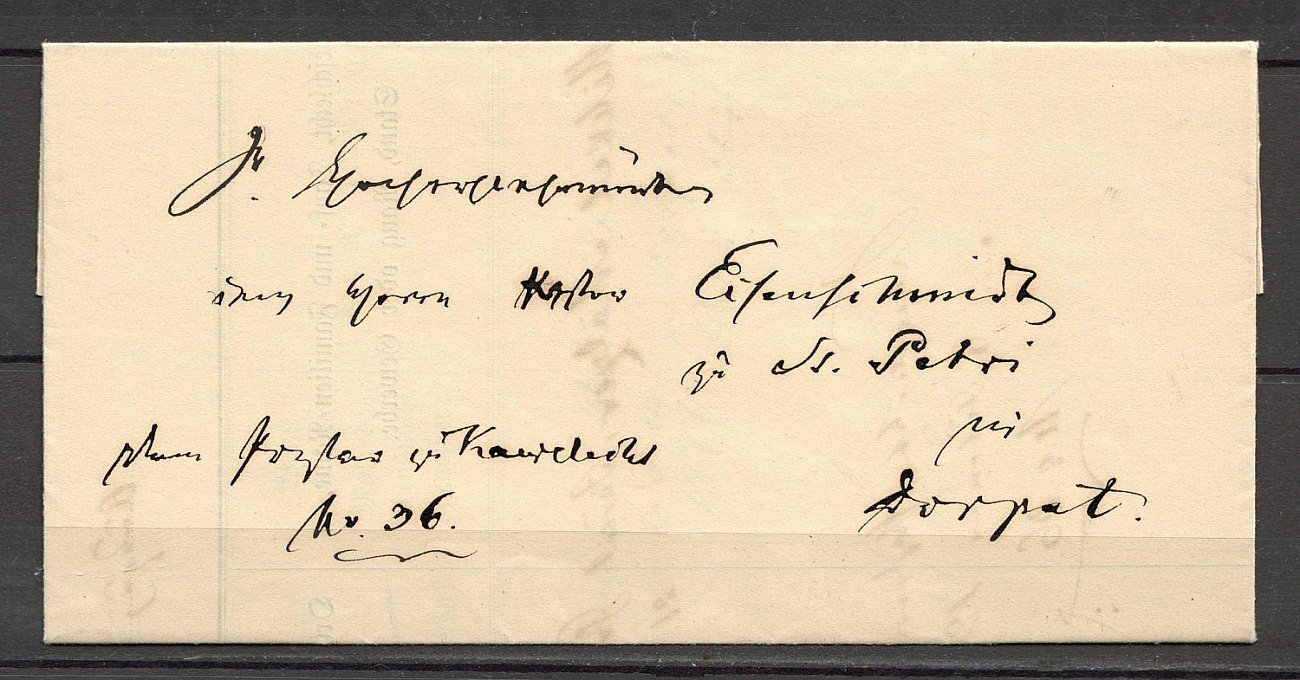 Sr. Hochehrwürden
dem Herrn Pastor Eisenschmidt
zu St. Petri
in
Dorpat.
vom Pastor zu Kawelecht
No. 36.